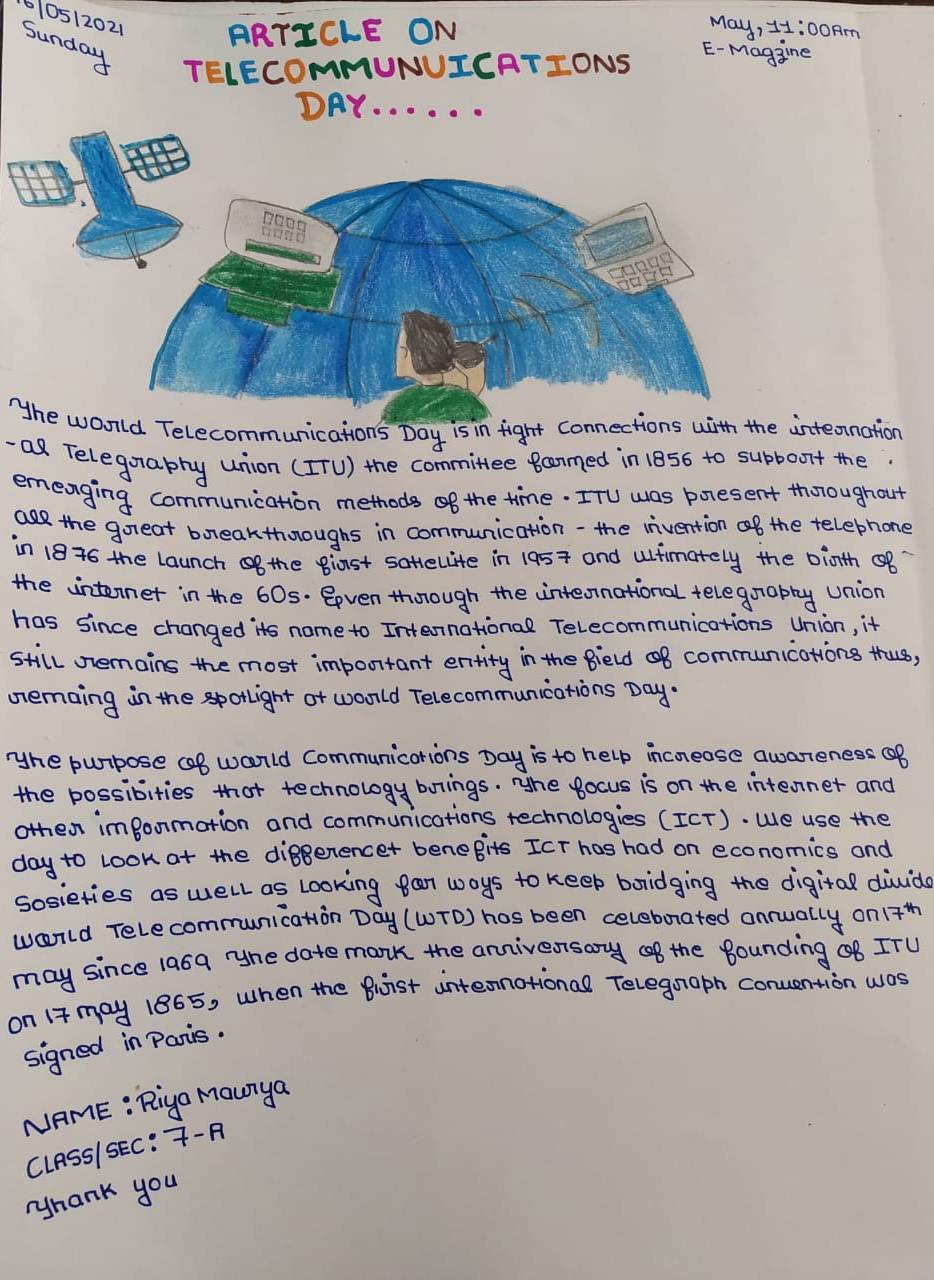 16/05/2021
Sunday
ARTICLE ON
TELECOMMUNUICATIONS
DAY......
May, 11:00Am
E-Magzine
The world Telecommunications Day is in tight connections with the internation
-al Telegraphy union (ITU) the committee formed in 1856 to support the
emerging communication methods of the time. ITU was present throughout
all the great breakthroughs in communication - the invention of the telephone
in 1876 the launch of the first satellite in 1957 and ultimately the birth of
the internet in the 60s. Even through the international telegraphy union
has since changed its name to International Telecommunications Union, it
still remains the most important entity in the field of communications thus,
remaing in the spotlight at world Telecommunications Day.
The purpose of world Communications Day is to help increase awareness of
the possibities that technology brings. The focus is on the internet and
other imformation and communications technologies (ICT). We use the
day to look at the differencet benefits ICT has had on economics and
Sosieties as well as looking for ways to keep bridging the digital divide
World Telecommunication Day (WTD) has been celebrated annually on 17th
may since 1969 The date mark the anniversary of the founding of ITU
on 17 may 1865, when the first international Telegraph Convention was
signed in Paris.
NAME: Riya Maurya
CLASS/SEC: 7-A
Thank you